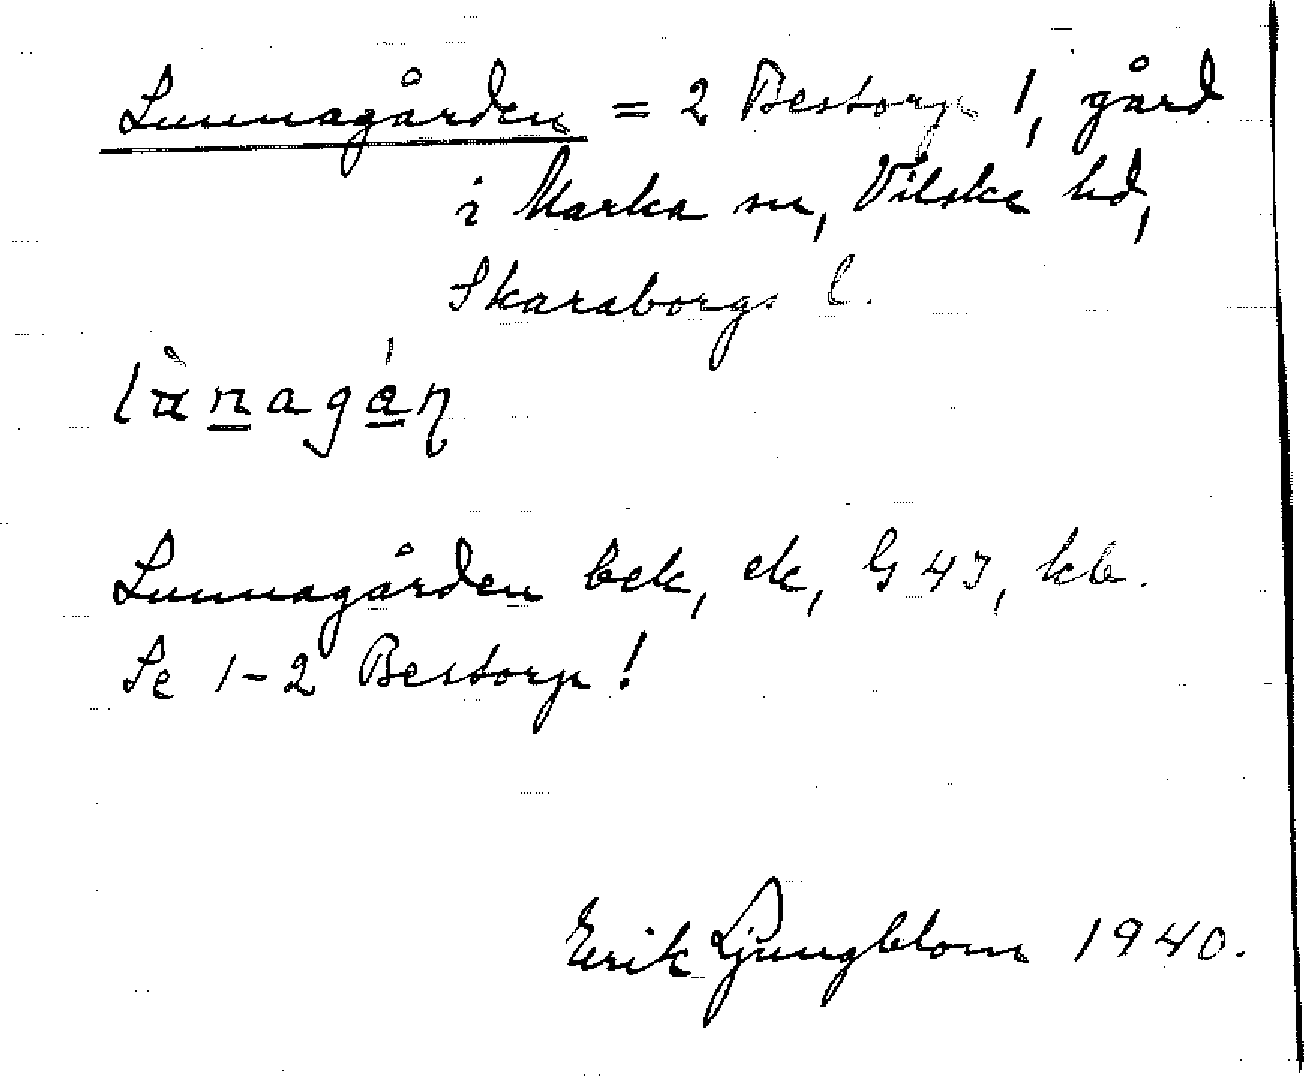 Lunnagården = 2 Bestorp 1, gård
i Marka sn, Vilske hd,
Skaraborgs l.
Lunnagården bek, ek, G 45, kb.
Se 1-2 Bestorp!
Erik Ljungblom 1940.